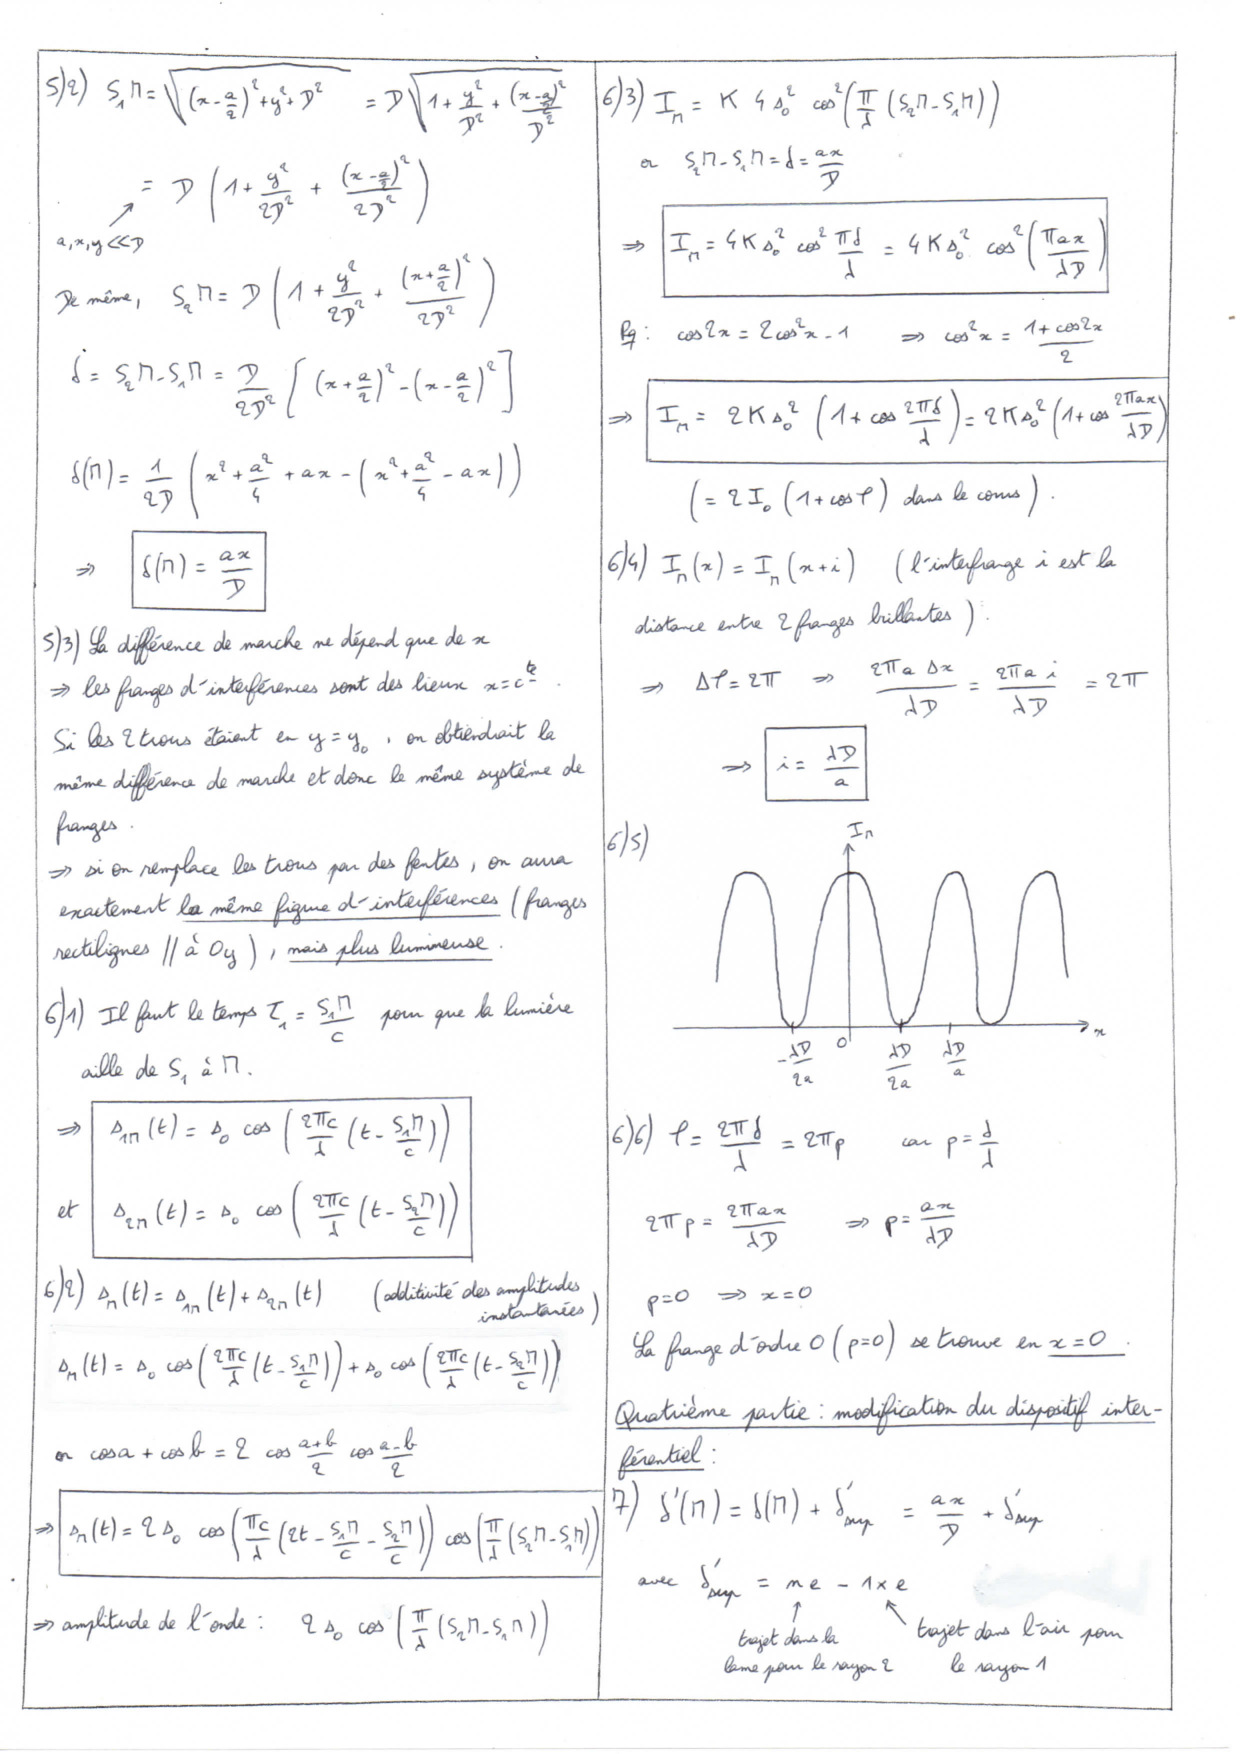 5)2) S₁M = √((x-a/2)²+y²+D²) = D√(1+y²/D²+(x-a/2)²/D²)
= D(1+y²/2D²+(x-a/2)²/2D²)
a,x,y<<D
De même, S₂M = D(1+y²/2D²+(x+a/2)²/2D²)
δ = S₂M-S₁M = D/2D² [(x+a/2)²-(x-a/2)²]
δ(M) = 1/2D (x²+a²/4+ax-(x²+a²/4-ax))
⇒ δ(M) = ax/D
5)3) La différence de marche ne dépend que de x
⇒ les franges d'interférences sont des lieux x=cᵗᵉ.
Si les 2 trous étaient en y=y₀, on obtiendrait la
même différence de marche et donc le même système de
franges.
⇒ si on remplace les trous par des fentes, on aura
exactement la même figure d'interférences (franges
rectilignes // à Oy), mais plus lumineuse.
6)1) Il faut le temps τ₁ = S₁M/c pour que la lumière
aille de S₁ à M.
⇒ s₁M(t) = s₀ cos(2πc/λ (t-S₁M/c))
et s₂M(t) = s₀ cos(2πc/λ (t-S₂M/c))
6)2) sM(t) = s₁M(t)+s₂M(t) (additivité des amplitudes
instantanées)
sM(t) = s₀ cos(2πc/λ (t-S₁M/c))+s₀ cos(2πc/λ (t-S₂M/c))
or cosa+cosb = 2 cos a+b/2 cos a-b/2
⇒ sM(t) = 2s₀ cos(πc/λ (2t-S₁M/c-S₂M/c)) cos(π/λ (S₂M-S₁M))
⇒ amplitude de l'onde : 2s₀ cos(π/λ (S₂M-S₁M))
6)3) IM = K 4s₀² cos²(π/λ (S₂M-S₁M))
or S₂M-S₁M = δ = ax/D
⇒ IM = 4Ks₀² cos² πδ/λ = 4Ks₀² cos²(πax/λD)
Rq : cos2x = 2cos²x-1 ⇒ cos²x = 1+cos2x/2
⇒ IM = 2Ks₀² (1+cos 2πδ/λ) = 2Ks₀² (1+cos 2πax/λD)
(= 2I₀ (1+cosφ) dans le cours).
6)4) IM(x) = IM(x+i) (l'interfrange i est la
distance entre 2 franges brillantes).
⇒ Δφ=2π ⇒ 2πaΔx/λD = 2πai/λD = 2π
⇒ i = λD/a
6)5)
IM
x
-λD/2a 0 λD/2a λD/a
6)6) φ = 2πδ/λ = 2πp car p = δ/λ
2πp = 2πax/λD ⇒ p = ax/λD
p=0 ⇒ x=0
La frange d'ordre 0 (p=0) se trouve en x=0.
Quatrième partie : modification du dispositif inter-
férentiel :
7) δ'(M) = δ(M) + δ'sup = ax/D + δ'sup
avec δ'sup = ne - 1×e
trajet dans la
lame pour le rayon 2
trajet dans l'air pour
le rayon 1